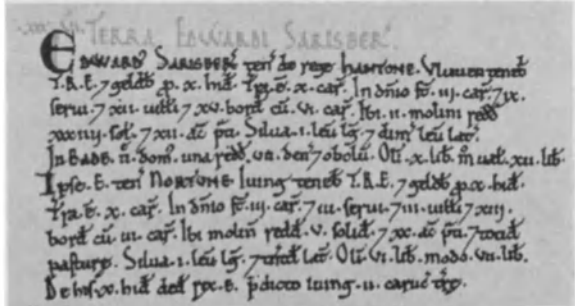 xxvii. TERRA EDWARDI SARISBER̃.
EDWARD' SARISBER' ten' de rege HANTONE. Vluuen teneb̃
T.R.E. ⁊ geldb̃ p̃. x. hid̃. Tr̃a. ẽ. x. car̃. In dñio st̃. iii. car̃. ⁊ ix.
serui. ⁊ xii. uiłłi ⁊ xv. bord̃ cũ. vi. car̃. Ibi. ii. molini redđ
xxxiiij. soł. ⁊ xii. ac̃ p̃ti. Silua. i. leũ lg̃. ⁊ dim' leũ lat̃.
In BADE. ii. dom'. una redđ. vii. den' ⁊ obolũ. Oli'. x. lib̃. m̃ uał. xii. lib̃.
Ipse. E. ten' NORTUNE. Iuing teneb̃ T.R.E. ⁊ geldb̃ p̃. x. hid̃.
Tr̃a ẽ. x. car̃. In dñio st̃. iii. car̃. ⁊ iii. serui. ⁊ iii. uiłłi ⁊ xiii.
bord̃ cũ. iii. car̃. Ibi molin' redđ. v. solid̃. ⁊ xx. ac̃ p̃ti ⁊ totid̃
pasturę. Silua. i. leũ lg̃. ⁊ tntđ lat̃. Oli'. vi. lib̃. modo. vii. lib̃.
De his. x. hid̃ ded̃ rex. E. p̃dicto Iuing. ii. caruc' tr̃ę.